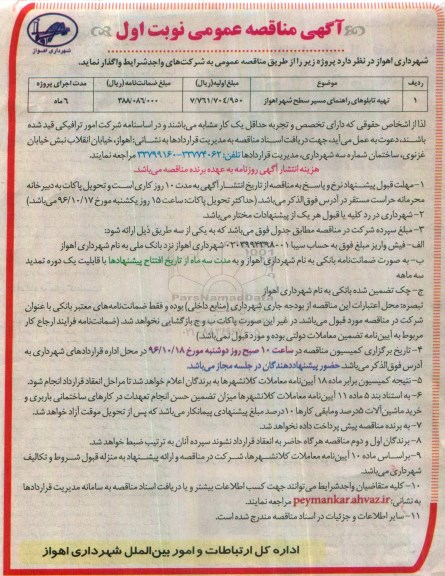 آگهی مناقصه عمومی نوبت اول
شهرداری اهواز
شهرداری اهواز در نظر دارد پروژه زیر را از طریق مناقصه عمومی به شرکت‌های واجد شرایط واگذار نماید.
ردیف موضوع مبلغ اولیه (ریال) مبلغ ضمانت‌نامه (ریال) مدت اجرای پروژه
۱ تهیه تابلوهای راهنمای مسیر سطح شهر اهواز ۷/۷۶۱/۷۰۴/۹۵۰ ۳۸۸/۰۸۶/۰۰۰ ۶ ماه
لذا از اشخاص حقوقی که دارای تخصص و تجربه حداقل یک کار مشابه می‌باشند و در اساسنامه شرکت امور ترافیکی قید شده
باشند، دعوت به عمل می‌آید، جهت دریافت اسناد مناقصه به مدیریت قراردادها به نشانی: اهواز، خیابان انقلاب نبش خیابان
غزنوی، ساختمان شماره سه شهرداری، مدیریت قراردادها تلفن: ۳۳۷۷۴۰۶۲-۳۳۷۹۹۱۶۰ مراجعه نمایند.
هزینه انتشار آگهی روزنامه به عهده برنده مناقصه می‌باشد.
۱- مهلت قبول پیشنهاد نرخ و پاسخ به مناقصه از تاریخ انتشار آگهی به مدت ۱۰ روز کاری است و تحویل پاکات به دبیرخانه
محرمانه حراست مستقر در آدرس فوق‌الذکر می‌باشد. (حداکثر تحویل پاکات: ساعت ۱۵ روز یکشنبه مورخ ۹۶/۱۰/۱۷ می‌باشد)
۲- شهرداری در رد کلیه یا قبول هر یک از پیشنهادات مختار می‌باشد.
۳- مبلغ سپرده شرکت در مناقصه مطابق جدول فوق می‌باشد که به یکی از سه طریق ذیل ارائه شود:
الف- فیش واریز مبلغ فوق به حساب سیبا ۲۰۳۹۹۲۳۹۸۰۰۱ - شهرداری اهواز نزد بانک ملی به نام شهرداری اهواز
ب- به صورت ضمانت‌نامه بانکی به نام شهرداری اهواز و به مدت سه ماه از تاریخ افتتاح پیشنهادها با قابلیت یک دوره تمدید
سه ماهه
ج- چک تضمین شده بانکی به نام شهرداری اهواز
تبصره: محل اعتبارات این مناقصه از بودجه جاری شهرداری (منابع داخلی) بوده و فقط ضمانت‌نامه‌های معتبر بانکی با عنوان
شرکت در مناقصه مورد قبول می‌باشد. در غیر این صورت پاکات ب و ج بازگشایی نخواهد شد. (ضمانت‌نامه فرایند ارجاع کار
مربوط به آیین‌نامه تضمین معاملات دولتی بوده و مورد قبول نمی‌باشد.)
۴- تاریخ برگزاری کمیسیون مناقصه در ساعت ۱۰ صبح روز دوشنبه مورخ ۹۶/۱۰/۱۸ در محل اداره قراردادهای شهرداری به
آدرس فوق‌الذکر می‌باشد. حضور پیشنهاددهندگان در جلسه مجاز می‌باشد.
۵- نتیجه کمیسیون برابر ماده ۱۸ آیین‌نامه معاملات کلانشهرها به برندگان اعلام خواهد شد تا مراحل انعقاد قرارداد انجام شود.
۶- به استناد بند ۵ ماده ۱۱ آیین‌نامه معاملات کلانشهرها میزان تضمین حسن انجام تعهدات در کارهای ساختمانی باربری و
خرید ماشین‌آلات ۵ درصد و مابقی کارها ۱۰ درصد مبلغ پیشنهادی پیمانکار می‌باشد که پس از تحویل موقت آزاد خواهد شد.
۷- به برنده مناقصه پیش پرداخت داده نخواهد شد.
۸- برندگان اول و دوم مناقصه هرگاه حاضر به انعقاد قرارداد نشوند سپرده آنان به ترتیب ضبط خواهد شد.
۹- براساس ماده ۱۰ آیین‌نامه معاملات کلانشهرها، شرکت در مناقصه و ارائه پیشنهاد به منزله قبول شروط و تکالیف
شهرداری می‌باشد.
۱۰- کلیه متقاضیان واجد شرایط می‌توانند جهت کسب اطلاعات بیشتر و یا دریافت اسناد مناقصه به سامانه مدیریت قراردادها
به نشانی: peymankar.ahvaz.ir مراجعه نمایند.
۱۱- سایر اطلاعات و جزئیات در اسناد مناقصه مندرج شده است.
اداره کل ارتباطات و امور بین‌الملل شهرداری اهواز